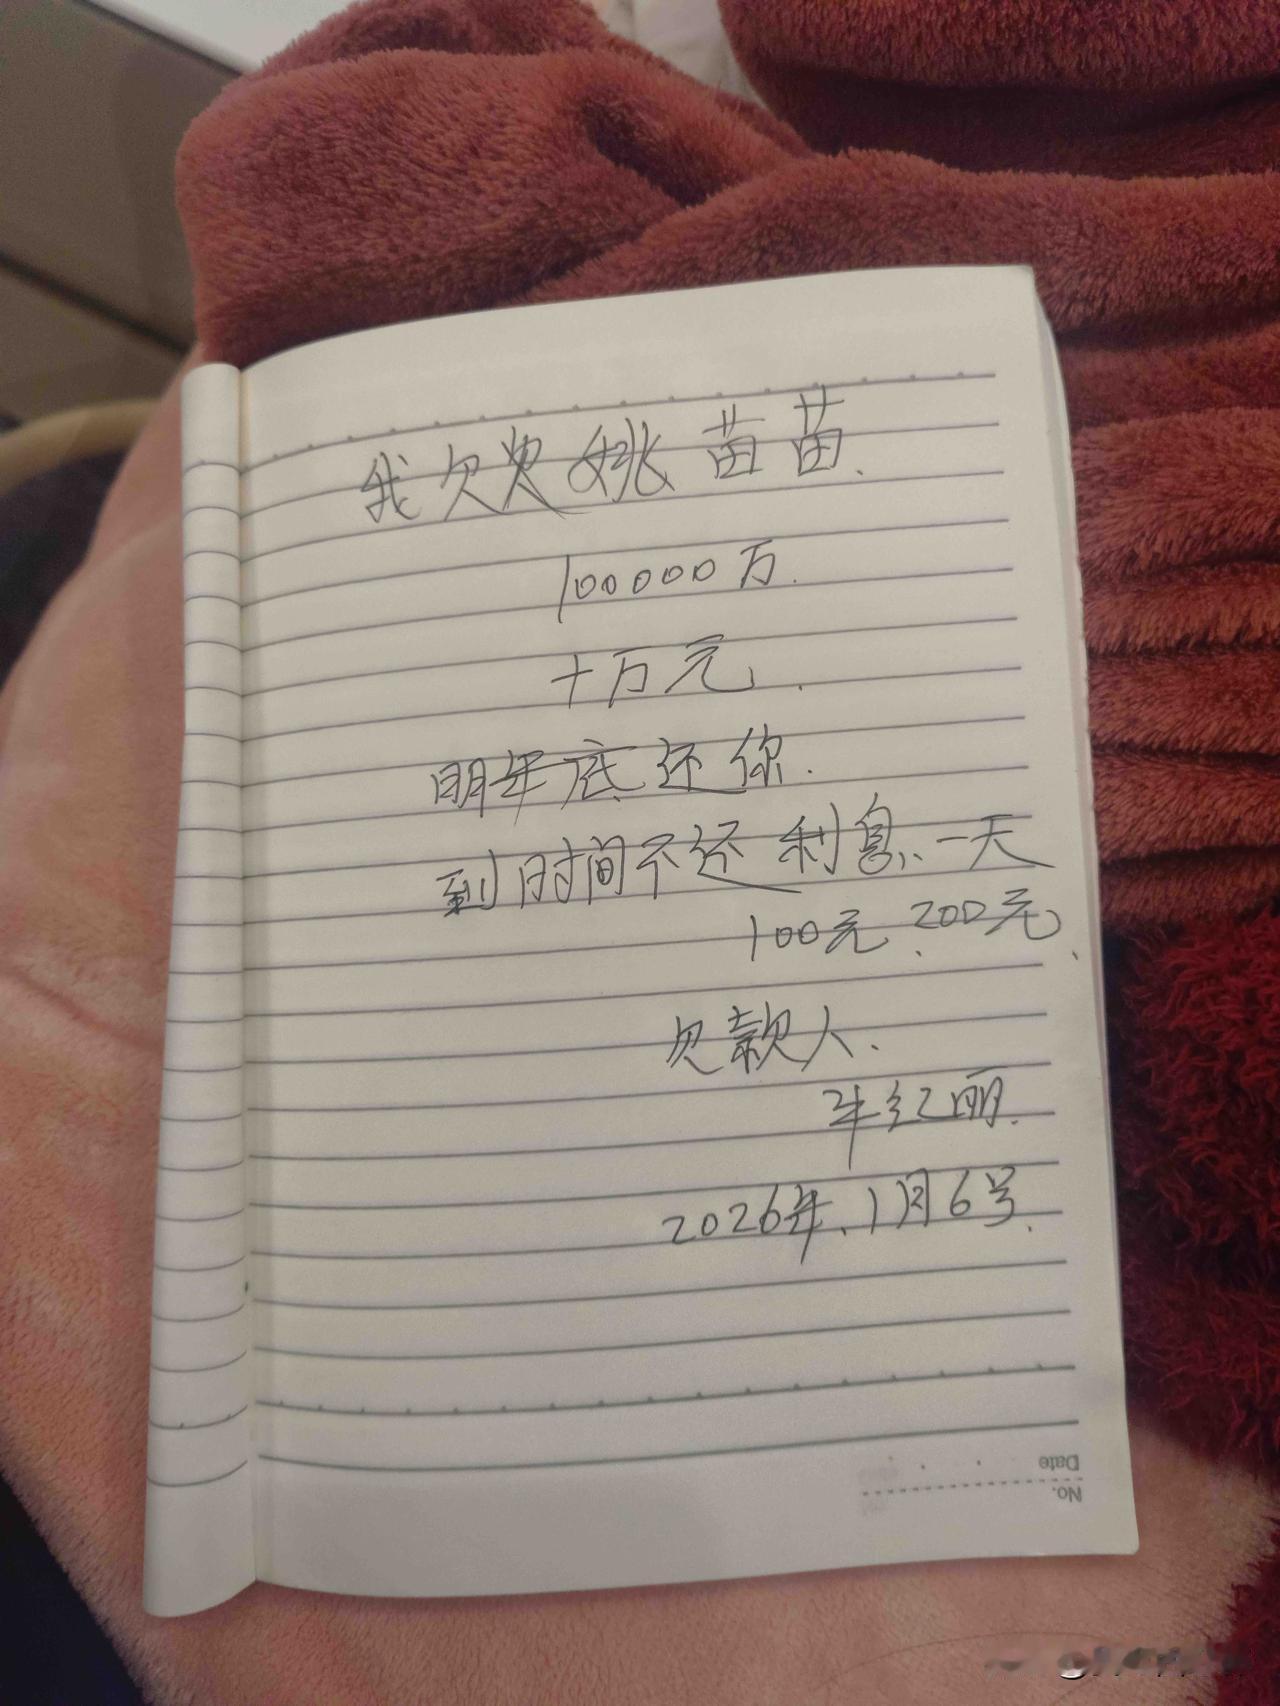 我欠姚苗苗.
100000万.
十万元.
明年底还你.
到时间不还利息、一天
100元、200元、
欠款人.
牛红丽.
2026年、1月6号.
Date
No.